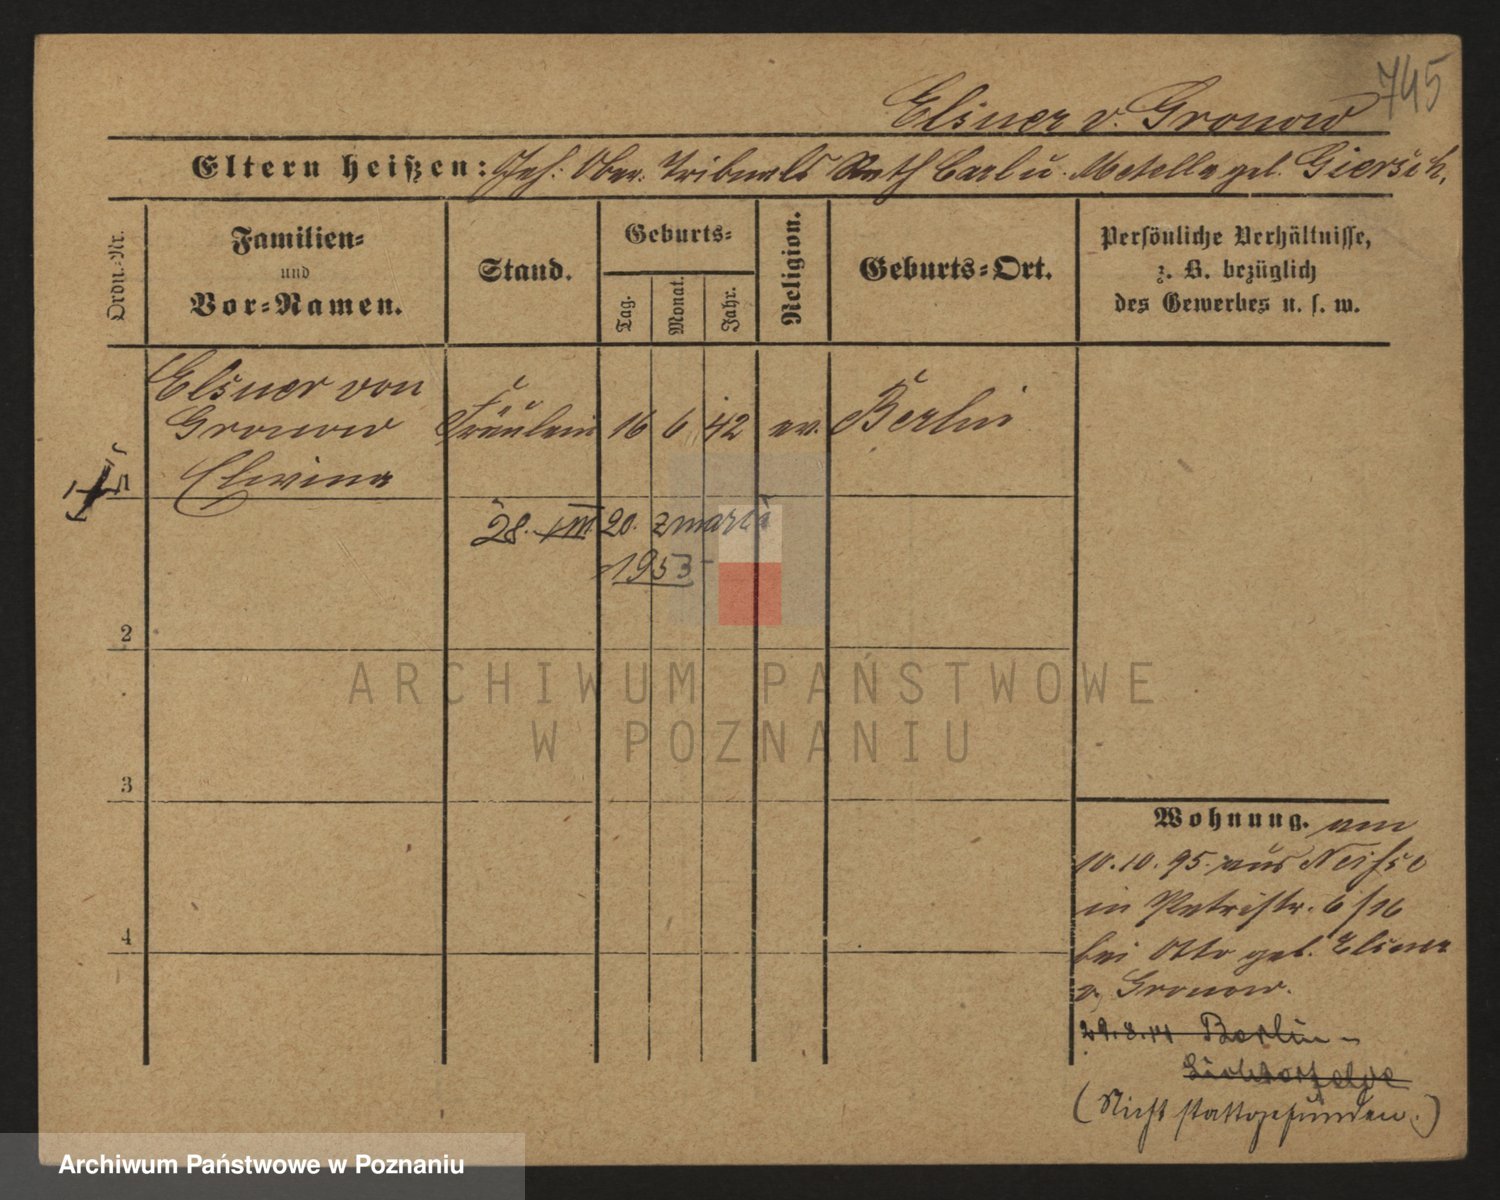 745
Elsner v. Gronow
Eltern heißen: Geh: Ober Tribunals Rath Carl u. Metella geb. Giersch.
Ordn.-Nr.
Familien-
und
Vor-Namen.
Stand.
Geburts-
Tag.
Monat.
Jahr.
Religion.
Geburts-Ort.
Persönliche Verhältnisse,
z. B. bezüglich
des Gewerbes u. s. w.
Elsner von
Gronow
Elwina
Fräulein 16 6 42 ev. Berlin
28. VIII. 20. zmarła
1953
2
3
4
Wohnung. am
10.10.95. aus Neisse
in Petristr. 6/16
bei Otto geb. Elsner
v. Gronow.
29.8.11 Berlin-
Lichterfelde
(Nicht stattgefunden.)
ARCHIWUM PAŃSTWOWE
W POZNANIU
Archiwum Państwowe w Poznaniu